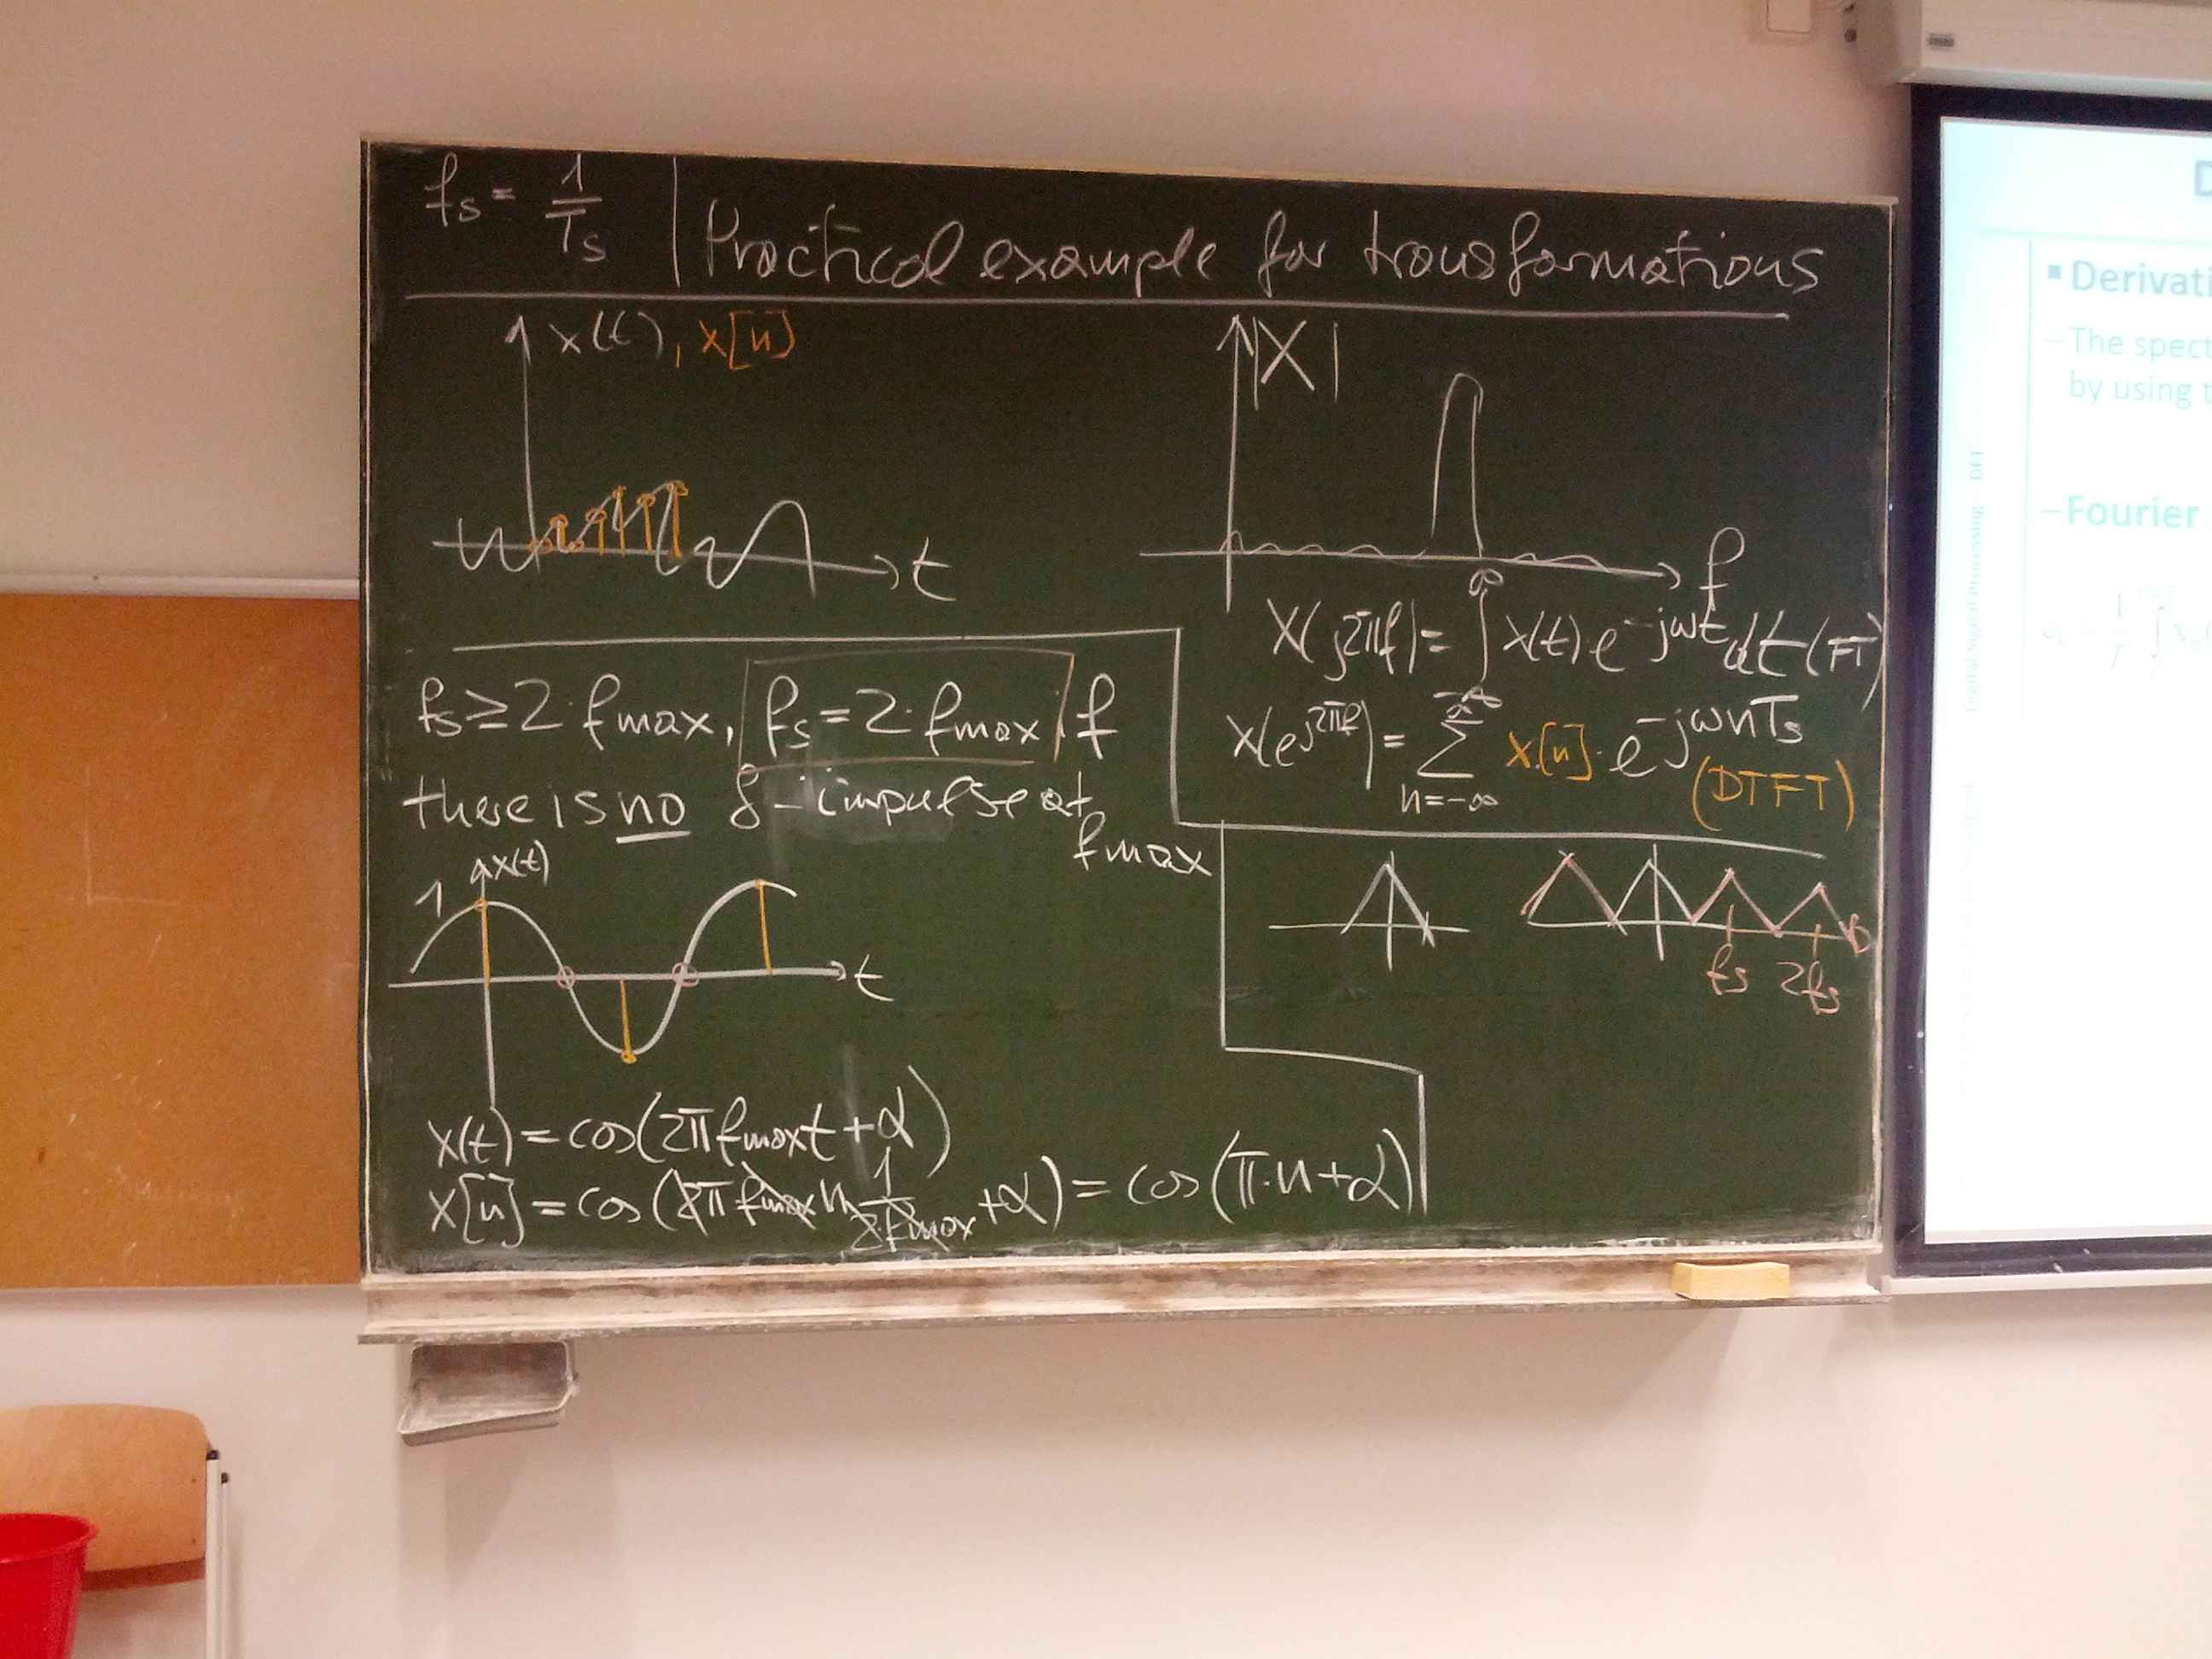 fs = 1/Ts | Practical example for transformations
x(t), x[n]
t
|X|
f
X(j2πf) = ∫_{-∞}^{∞} x(t)·e^{-jωt} dt (FT)
X(e^{j2πf}) = ∑_{n=-∞}^{∞} x[n]·e^{-jωnTs}
(DTFT)
fs ≥ 2·fmax, fs = 2·fmax if
there is no δ-impulse at
fmax
x(t)
1
t
fs 2fs
x(t) = cos(2πfmaxt+α)
x[n] = cos(2πfmax n 1/(2·fmax) +α) = cos(π·n+α)
D
▪ Derivati
– The spect
by using t
– Fourier
Digital Signal Processing DFT